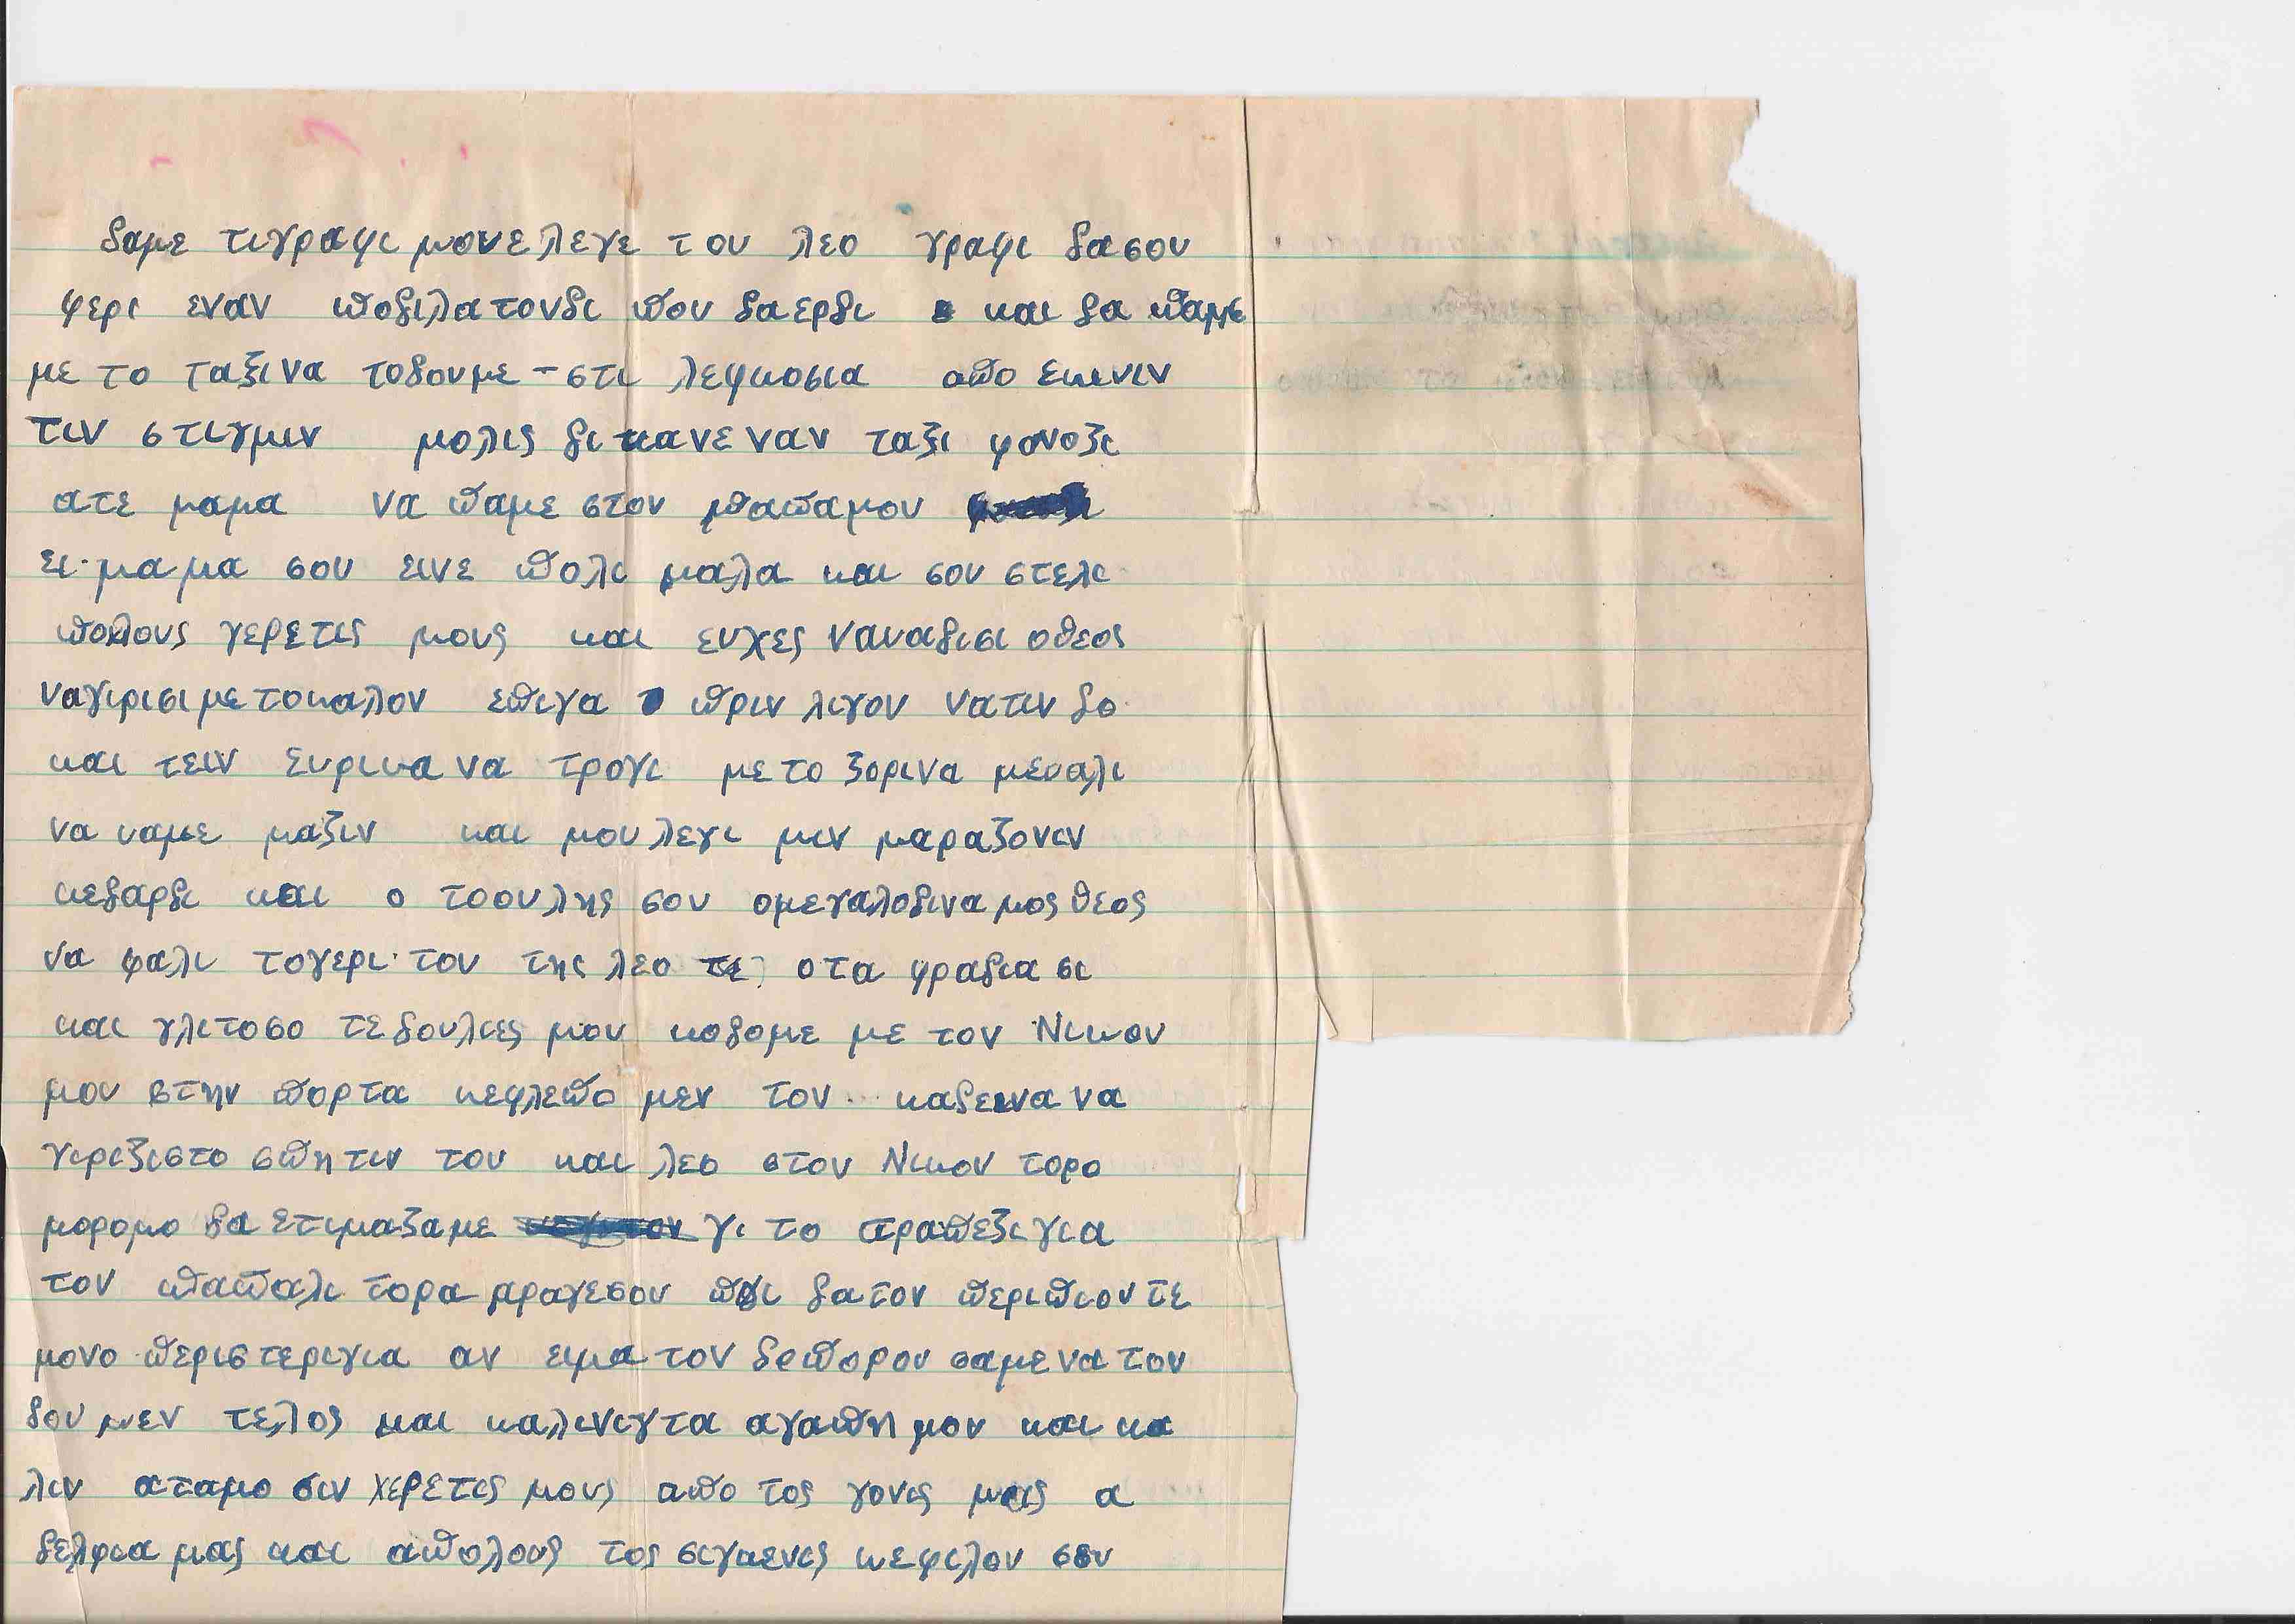 δαμε τιγραφι μουνε λεγε του λεο γραφι δασου
φερι εναν ποδιλατονδι που δαερδι και δα παμε
με το ταξι να τοδουμε - στι λεφκοσια απο εκινιν
τιν στιγμιν μολις δι κανεναν ταξι φονοζι
ατε μαμα να παμε στον μπαπαμου
ει μαμα σου εινε πολι μαλα και σου στελι
πολους γερετις μους και ευχες ναναδισι οθεος
ναγιρισι με τοκαλον επιγα πριν λιγον νατιν δο
και τειν ευρικα να τρογι με το ζορινα μεσαλι
να καμε μαζιν και μου λεγι μιν μαραζονιν
κεδαρδι και ο τοουλης σου ομεγαλοδιναμος θεος
να φαλι τογερι του της λεο τε οτα φραδιασι
και γλιτοσο τε δουλιες μου κοδομε με τον Νικον
μου στην πορτα κεφλεπο μεν τον καδεινα να
γιριζι στο σπητιν του και λεο στον Νικον τορο
μορομο δα ετιμαζαμε γι το τραπεζι για
τον παπαλι τορα μραγεσου πρι δα τον περιπιον τε
μονο περιστεριγια αν ειμα τον διπορου σαμε να τον
δου μεν τελος και καλινιγτα αγαπη μου και κα
λιν αταμο σιν χερετις μους απο τος γονις μας α
δελφια μας και απολους τος σιγκενις κεφιλον σου